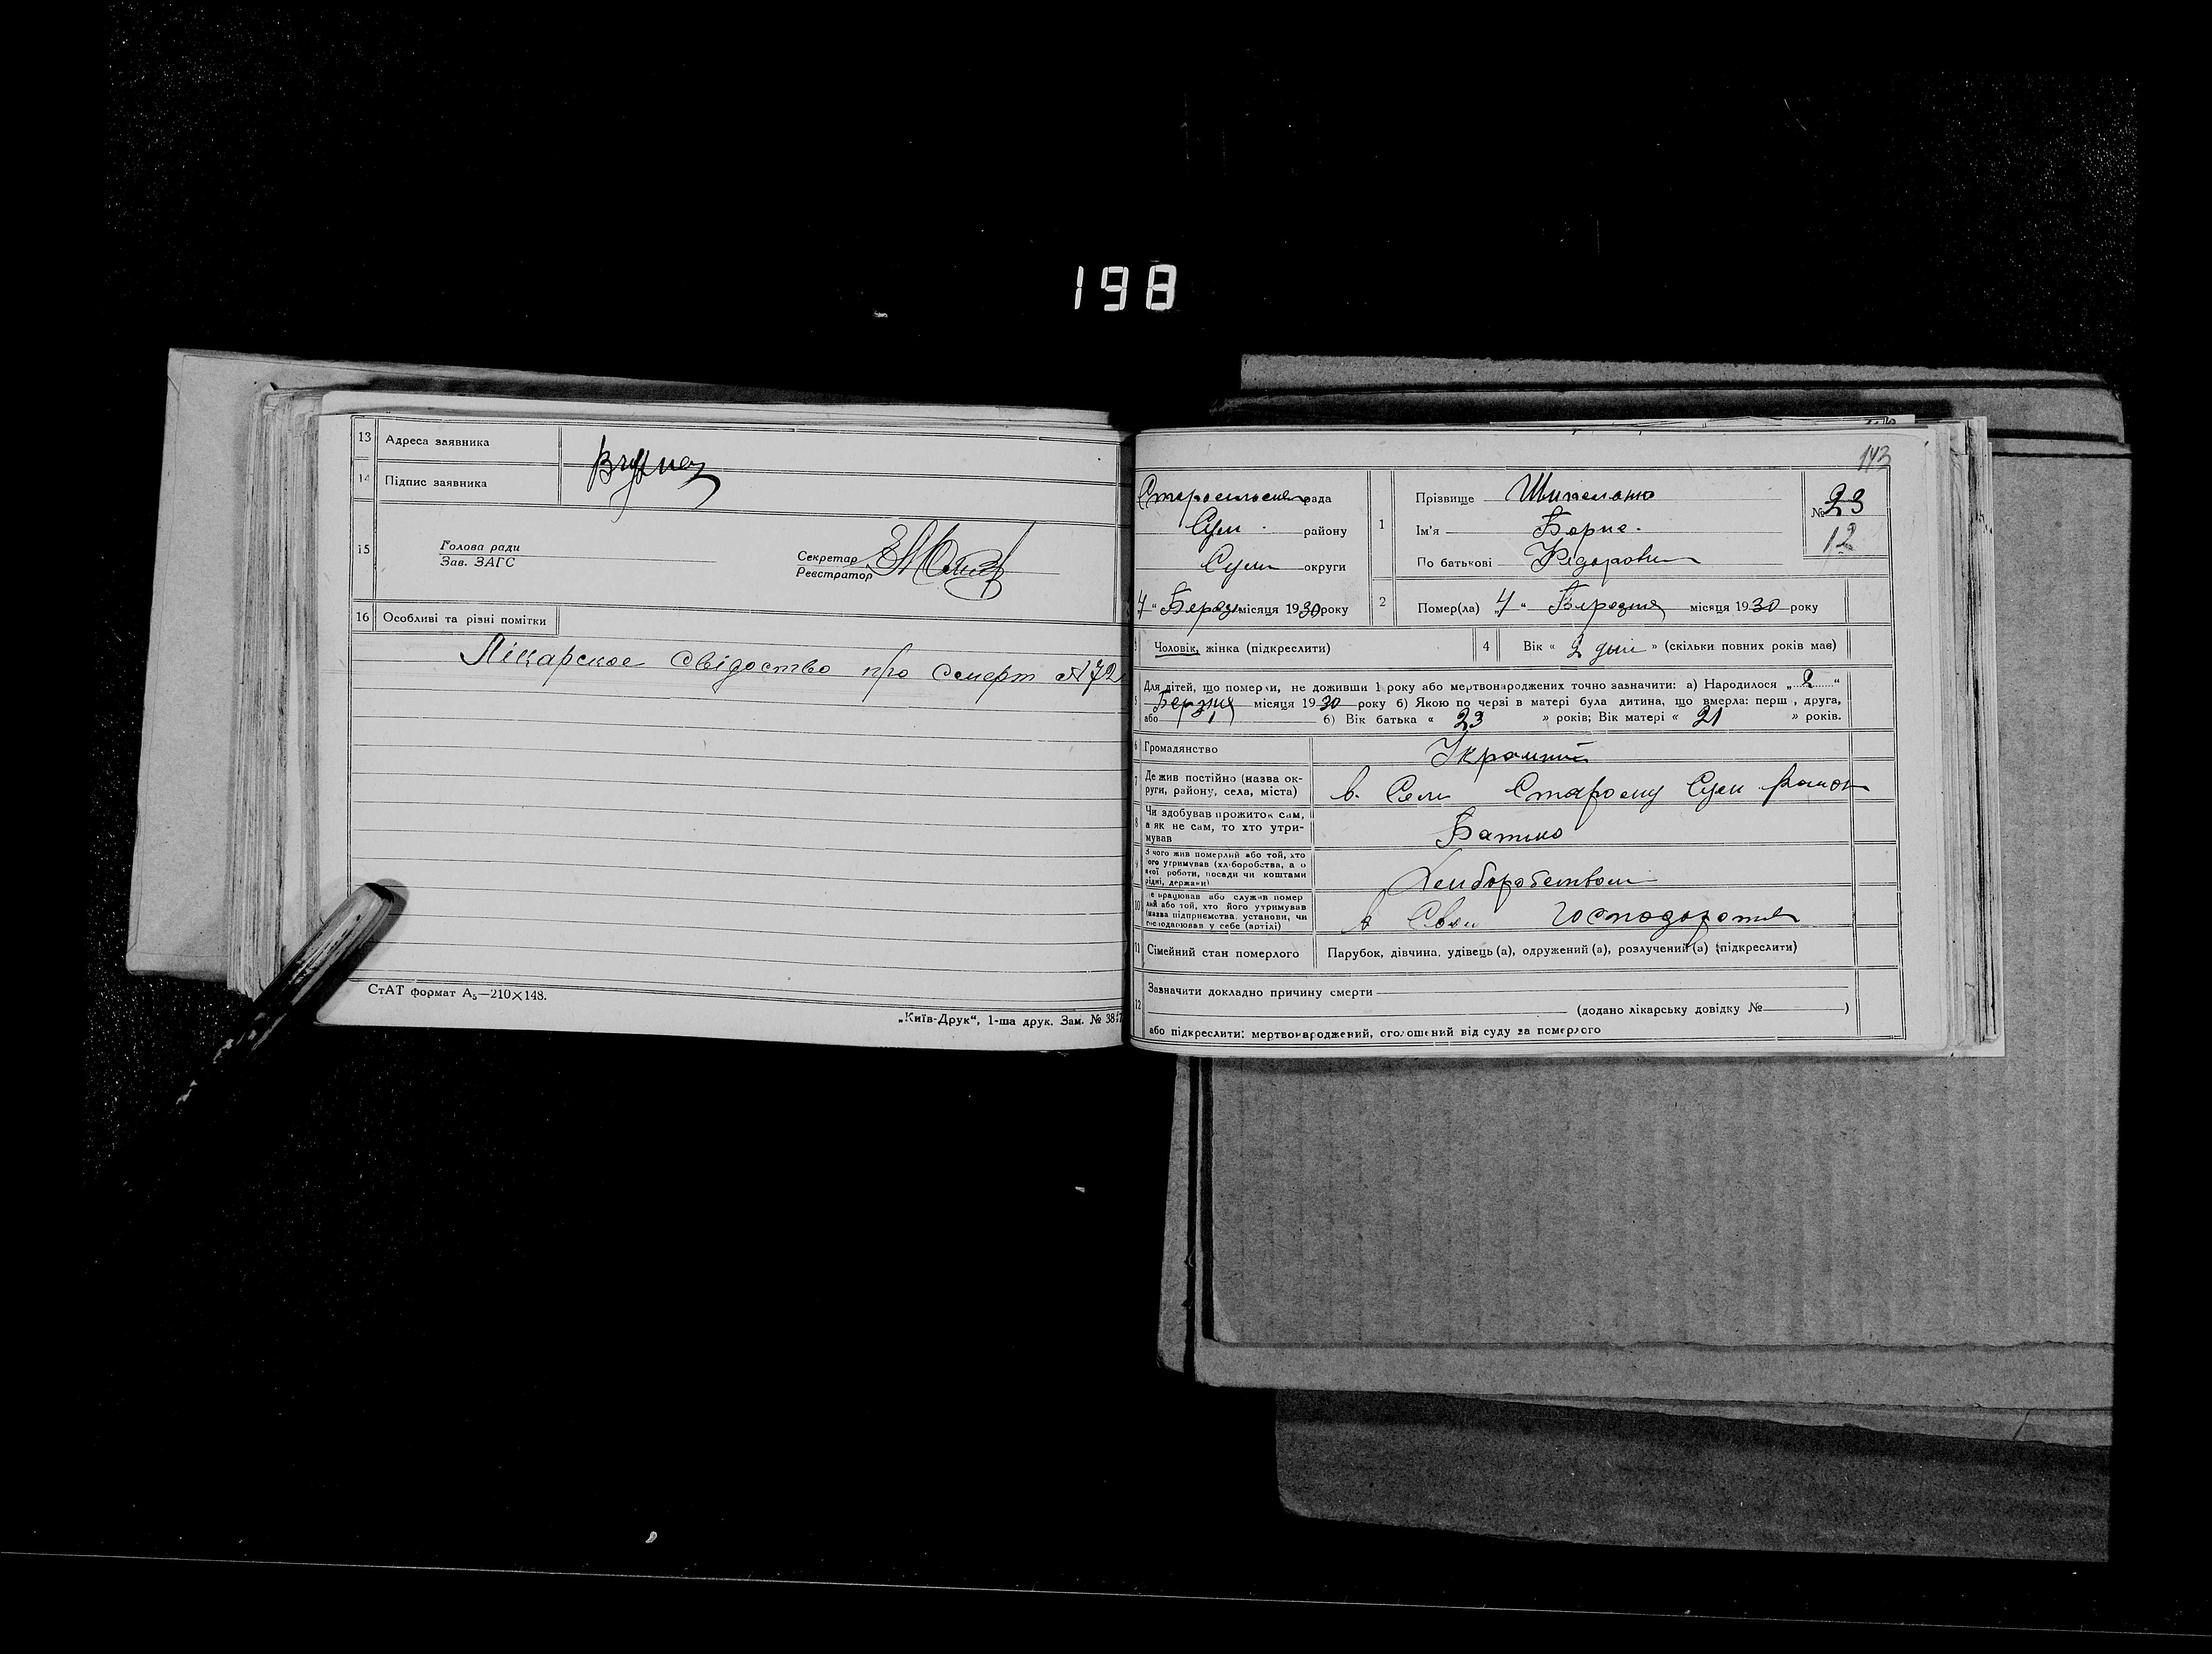 198
13 Адреса заявника
14 Підпис заявника
15 Голова ради
Зав. ЗАГС
Секретар
Реєстратор
16 Особливі та різні помітки
Лікарское свідоство про смерт №72
СтАТ формат А₅—210×148.
„Київ-Друк“, 1-ша друк. Зам. №
143
рада
Сум. району
Суми округи
1 Прізвище
Ім'я Борис.
По батькові Федорович
№ 23
12
4 “ Берез місяця 1930 року
2 Помер(ла) „4 “ Березня місяця 1930 року
3 Чоловік, жінка (підкреслити)
4 Вік « 2 дні » (скільки повних років мав)
5 Для дітей, що померли, не доживши 1 року або мертвонароджених точно зазначити: а) Народилося „ 2 “
Березня місяця 1930 року б) Якою по черзі в матері була дитина, що вмерла: перш , друга,
або б) Вік батька « 23 » років; Вік матері « 21 » років.
6 Громадянство
7 Де жив постійно (назва округи, району, села, міста)
в. Селі Старому Сум район
8 Чи здобував прожиток сам,
а як не сам, то хто утримував
Батько
9 З чого жив померлий або той, хто
його утримував (хліборобства, а о
якої роботи, посади чи коштами
рідні, держави)
10 Де працював або служив помер
лий або той, хто його утримував
(назва підприємства, установи, чи
господарював у себе (артілі)
в
11 Сімейний стан померлого
Парубок, дівчина, удівець (а), одружений (а), розлучений (а) (підкреслити)
12 Зазначити докладно причину смерти
(додано лікарську довідку № )
або підкреслити: мертвонароджений, оголошений від суду за померлого